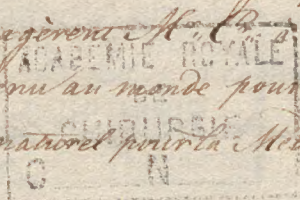 agèrent M.
ACADEMIE ROYALE
nu au monde pour
DE
CHIRURGIE
naturel pour la Me
O N